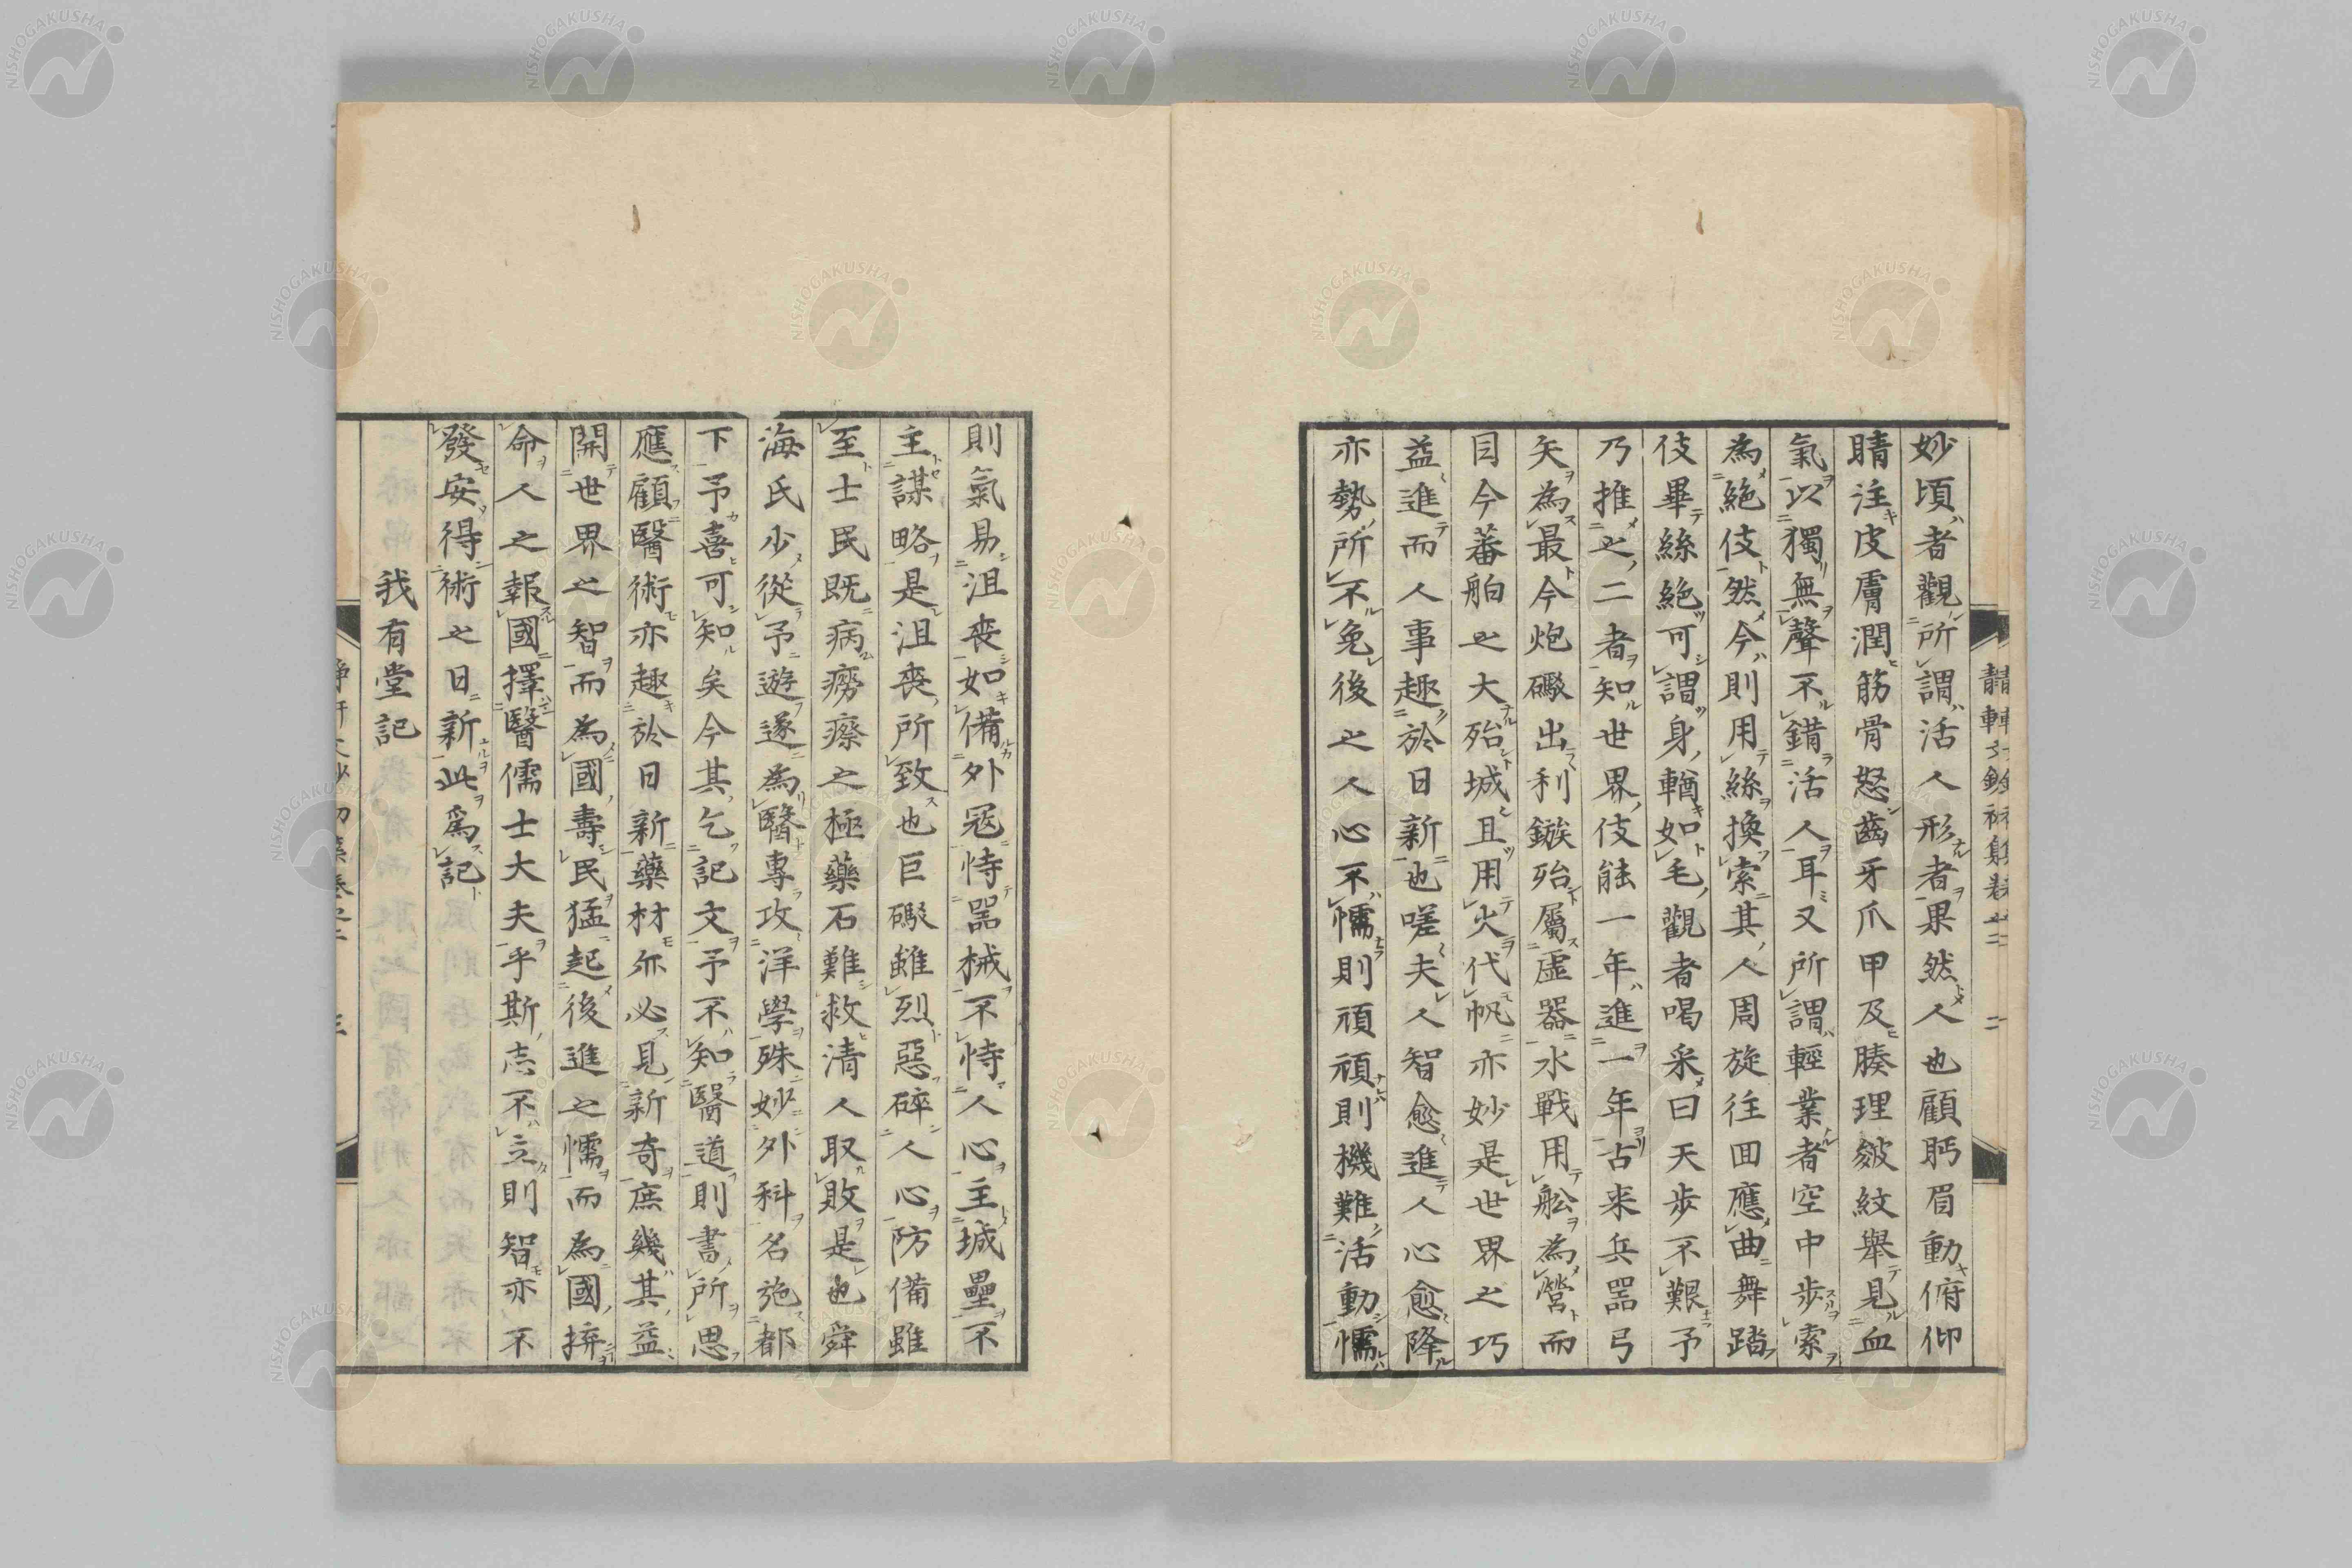 妙頃者觀所謂活人形者果然人也顧眄眉動俯仰
睛注皮膚潤筋骨怒齒牙爪甲及腠理皴紋舉見血
氣以獨無聲不錯活人耳又所謂輕業者空中步索
為絶伎然今則用絲換索其人周旋往回應曲舞踏
伎畢絲絶可謂身輶如毛觀者喝采曰天步不艱予
乃推之二者知世界伎能一年進一年古来兵器弓
矢為最今炮礮出利鏃殆屬虛器水戰用舩為營而
目今蕃舶之大殆城且用火代帆亦妙是世界之巧
益進而人事趣於日新也嗟夫人智愈進人心愈降
亦勢所不免後之人心不懦則頑頑則機難活動懦
則氣易沮喪如備外寇恃器械不恃人心主城壘不
主謀略是沮喪所致也巨礮雖烈惡碎人心防備雖
至士民既病癆瘵之極藥石難救清人取敗是也舜
海氏少從予遊遂為醫專攻洋學殊妙外科名施都
下予喜可知矣今其乞記文予不知醫道則書所思
應顧醫術亦趣於日新藥材亦必見新奇庶幾其益
開世界之智而為國壽民猛起後進之懦而為國擠
命人之報國擇醫儒士大夫乎斯志不立則智亦不
發安得術之日新此爲記
我有堂記
NISHOGAKUSHA